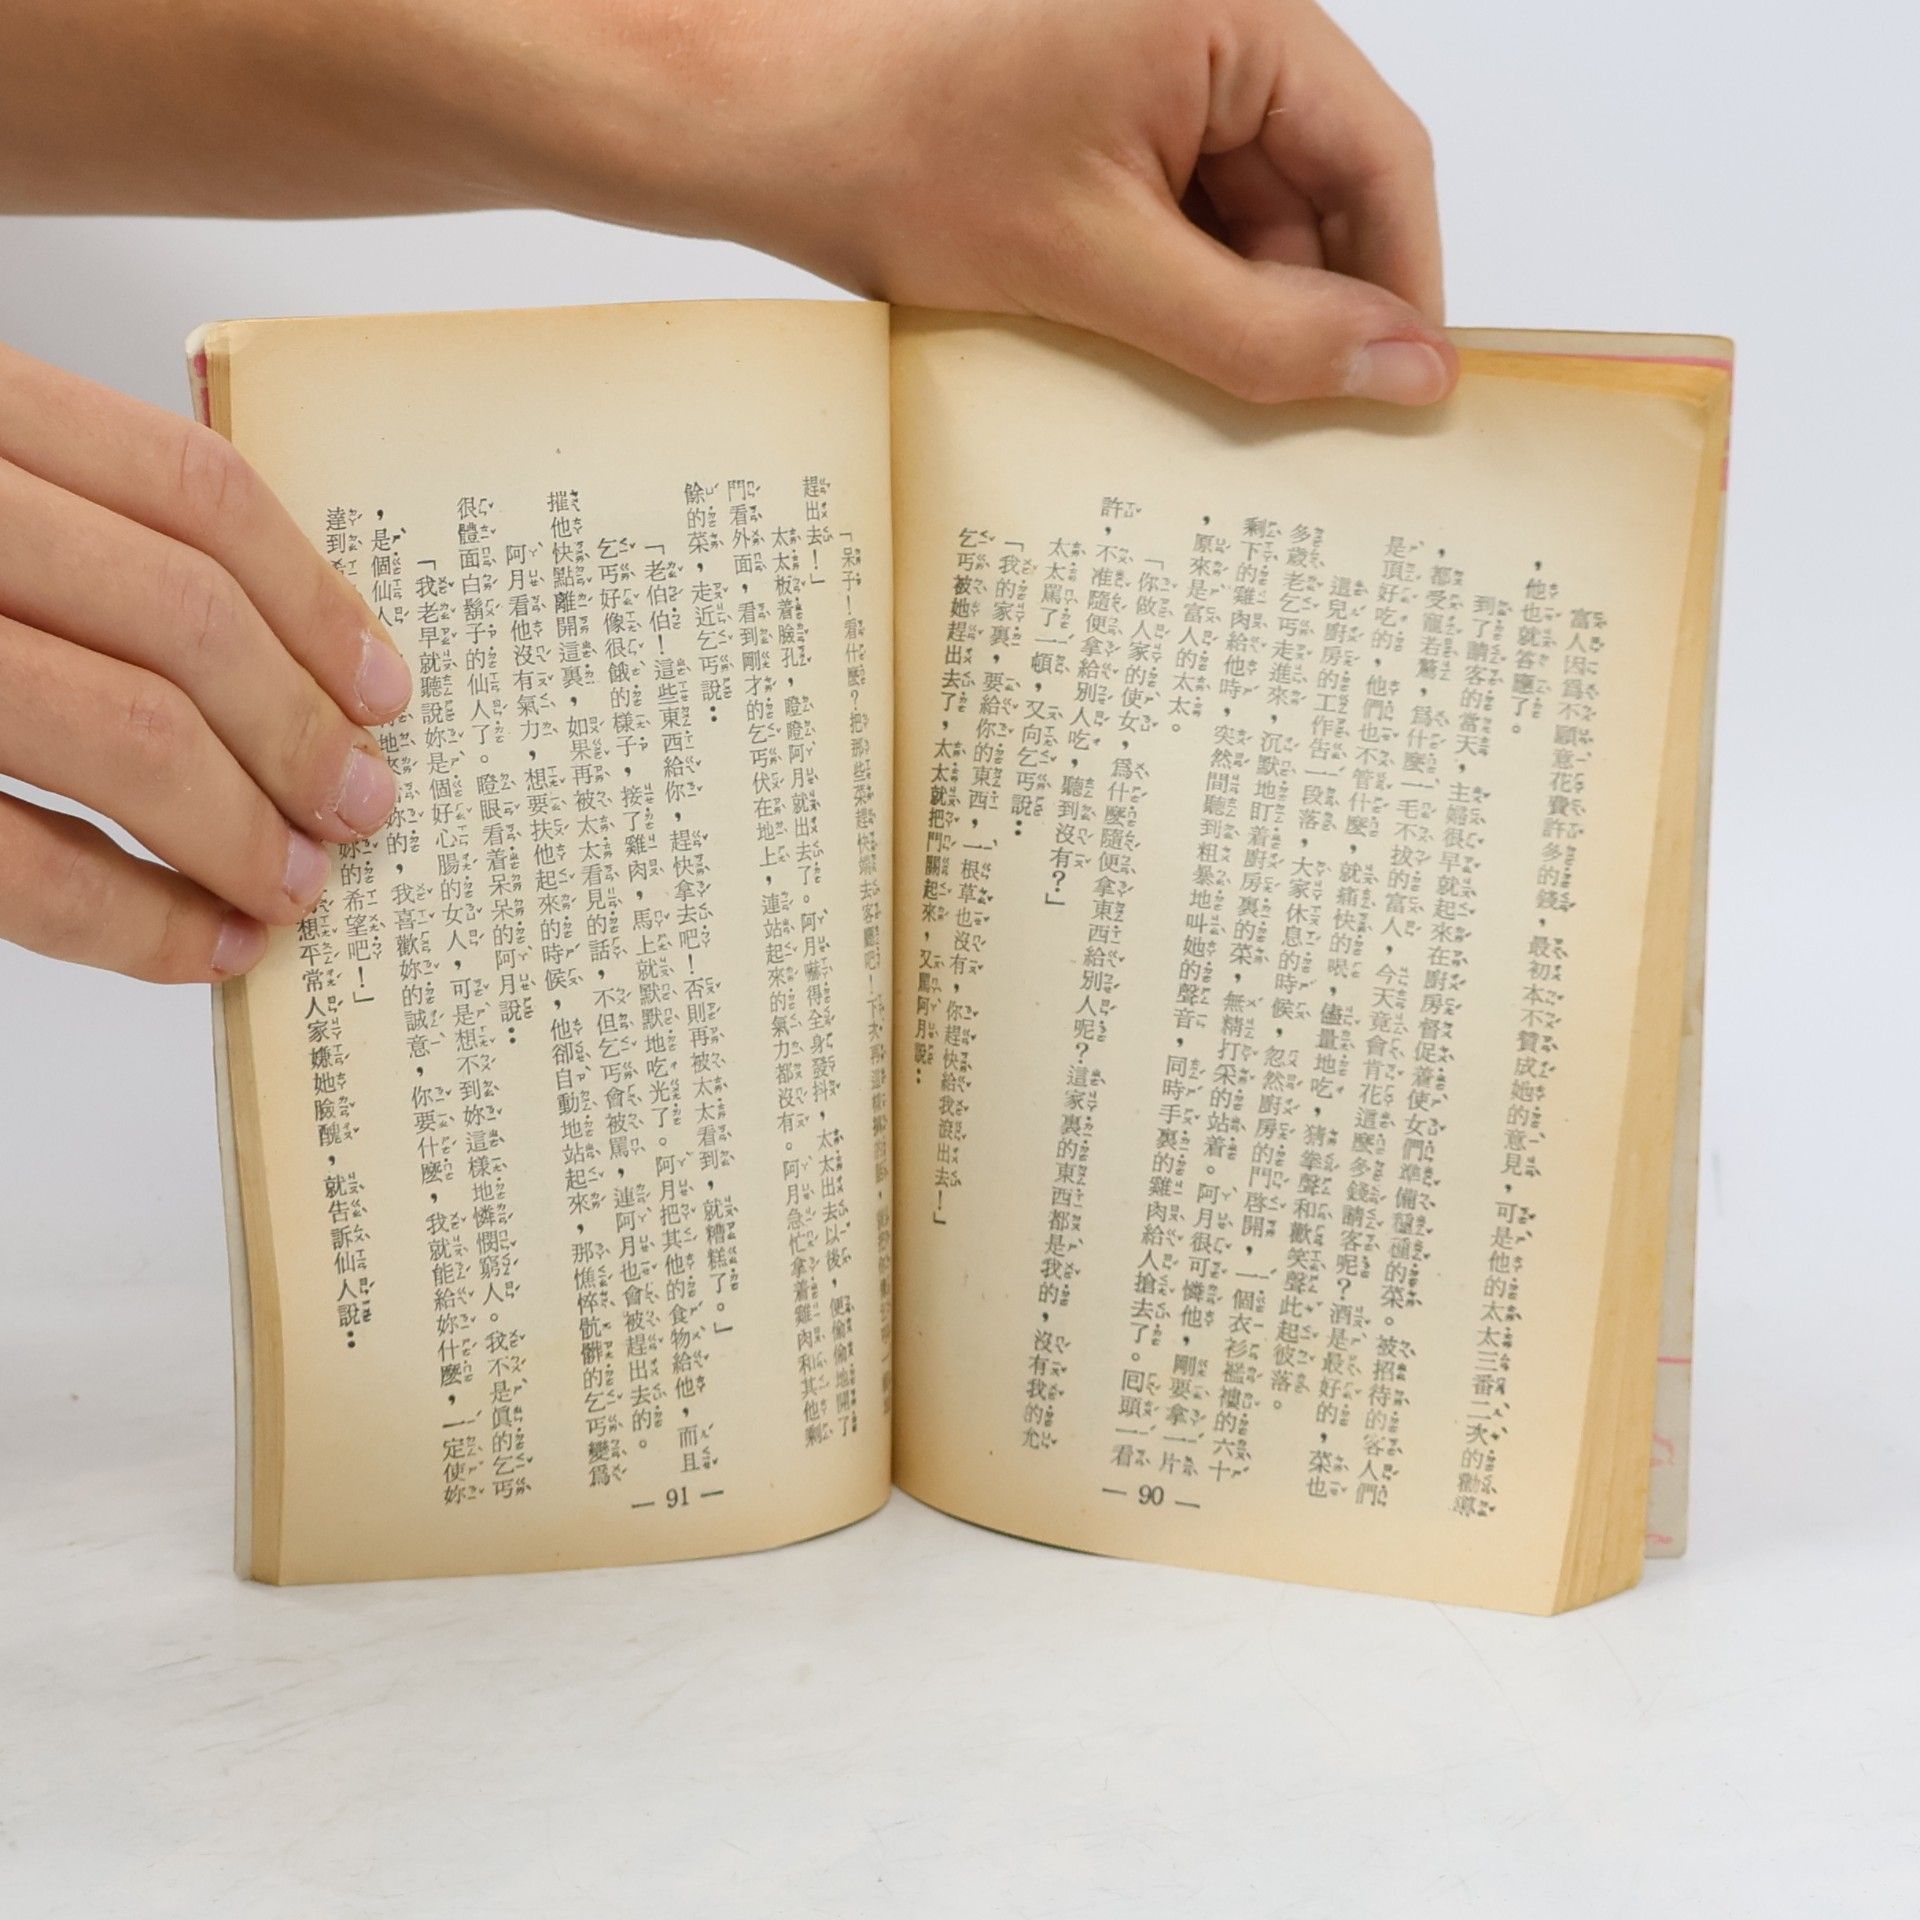 富人因爲不願意花費許多的錢，最初本不贊成她的意見，可是他的太太三番二次的勸導
，他也就答應了。
到了請客的當天，主婦很早就起來在廚房督促着使女們準備種種的菜。被招待的客人們
，都受寵若驚，爲什麼一毛不拔的富人，今天竟會肯花這麼多錢請客呢？酒是最好的，菜也
是頂好吃的，他們也不管什麼，就痛快的喫，儘量地吃，猜拳聲和歡笑聲此起彼落。
這兒廚房的工作告一段落，大家休息的時候，忽然廚房的門啓開，一個衣衫襤褸的六十
多歲老乞丐走進來，沉默地盯着廚房裏的菜，無精打采的站着。阿月很可憐他，剛要拿一片
剩下的雞肉給他時，突然間聽到粗暴地叫她的聲音，同時手裏的雞肉給人搶去了。囘頭一看
，原來是富人的太太。
「你做人家的使女，爲什麼隨便拿東西給別人呢？這家裏的東西都是我的，沒有我的允
許，不准隨便拿給別人吃，聽到沒有？」
太太罵了一頓，又向乞丐說：
「我的家裏，要給你的東西，一根草也沒有，你趕快給我滾出去！」
乞丐被她趕出去了，太太就把門關起來，又罵阿月說：
— 90 —
「呆子！看什麼？把那些菜趕快端去客廳吧！下次再
趕出去！」
太太板着臉孔，瞪瞪阿月就出去了。阿月嚇得全身發抖，太太出去以後，便偷偷地開了
門看外面，看到剛才的乞丐伏在地上，連站起來的氣力都沒有。阿月急忙拿着雞肉和其他剩
餘的菜，走近乞丐說：
「老伯伯！這些東西給你，趕快拿去吧！否則再被太太看到，就糟糕了。」
乞丐好像很餓的樣子，接了雞肉，馬上就默默地吃光了。阿月把其他的食物給他，而且
摧他快點離開這裏，如果再被太太看見的話，不但乞丐會被罵，連阿月也會被趕出去的。
阿月看他沒有氣力，想要扶他起來的時候，他卻自動地站起來，那憔悴骯髒的乞丐變爲
很體面白鬍子的仙人了。瞪眼看着呆呆的阿月說：
「我老早就聽說妳是個好心腸的女人，可是想不到妳這樣地憐憫窮人。我不是眞的乞丐
，是個仙人 妳的，我喜歡妳的誠意，你要什麼，我就能給妳什麼，一定使妳
達到 妳的希望吧！」
想平常人家嫌她臉醜，就告訴仙人說：
— 91 —